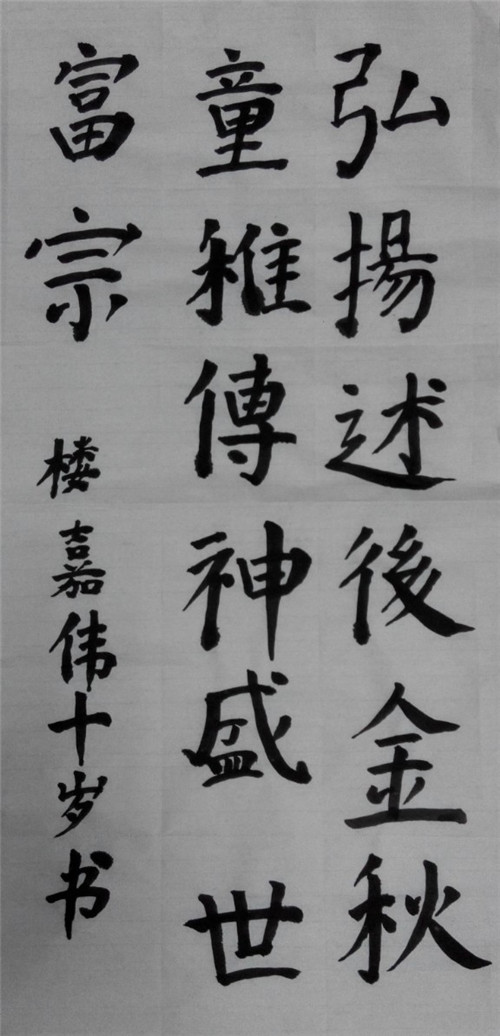 弘揚述後金秋
童稚傳神盛世
富宗
楼嘉伟十岁书